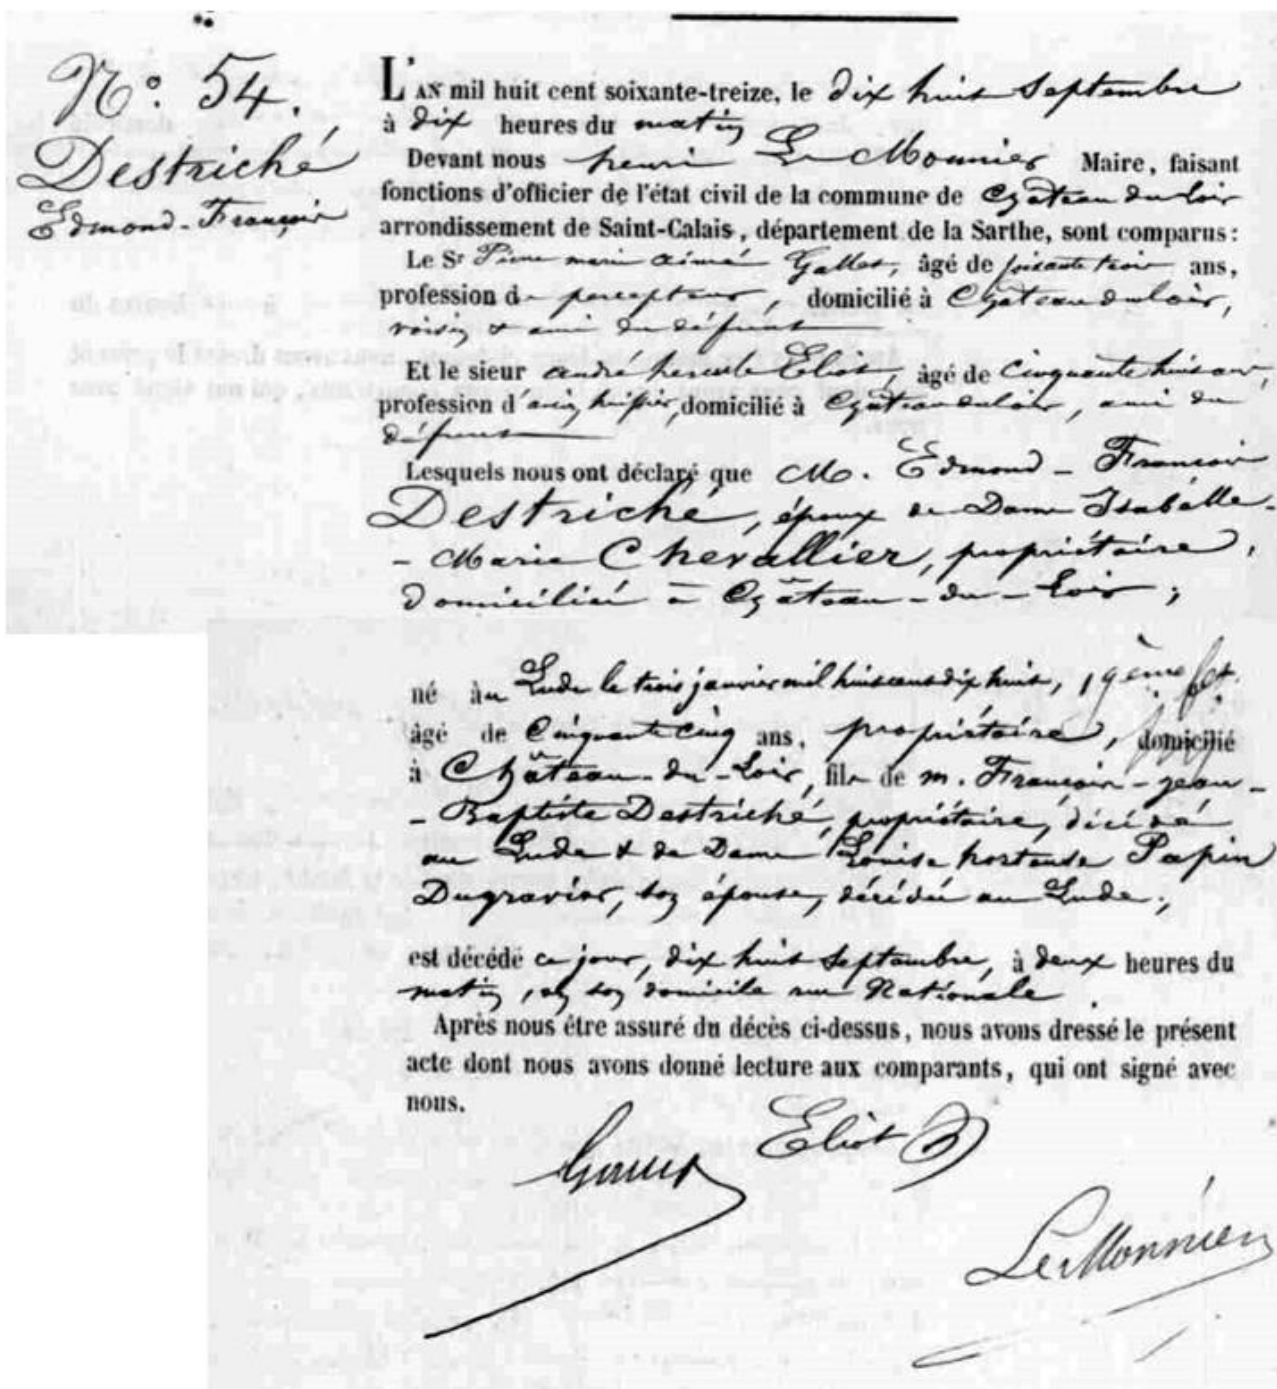 N° 54.
Destriché
Edmond-François
L'AN mil huit cent soixante-treize, le dix huit Septembre
à dix heures du matin
Devant nous henri Le Monnier Maire, faisant
fonctions d'officier de l'état civil de la commune de Château du loir
arrondissement de Saint-Calais, département de la Sarthe, sont comparus :
Le Sr Pierre marie aimé âgé de soixante trois ans,
profession de percepteur, domicilié à Château du loir,
voisin & ami du défunt
Et le sieur andré hercule Eliot, âgé de Cinquante huit ans,
profession d'ancien huissier, domicilié à Château du loir, ami du
défunt
Lesquels nous ont déclaré que M. Edmond - François
Destriché, époux de Dame Isabelle-
- Marie Chevallier, propriétaire,
domicilié à Château-du-Loir ;
né au Lude le trois janvier mil huit cent dix huit,
âgé de Cinquante cinq ans, propriétaire, domicilié
à Château-du-Loir, fils de M. François-jean-
- Baptiste Destriché, propriétaire, décédé
au Lude & de Dame Louise hortense Papin
Dugravier, son épouse, décédée au Lude ;
est décédé ce jour, dix huit Septembre, à deux heures du
matin, en son domicile rue Nationale.
Après nous être assuré du décès ci-dessus, nous avons dressé le présent
acte dont nous avons donné lecture aux comparants, qui ont signé avec
nous.
Eliot
LeMonnier